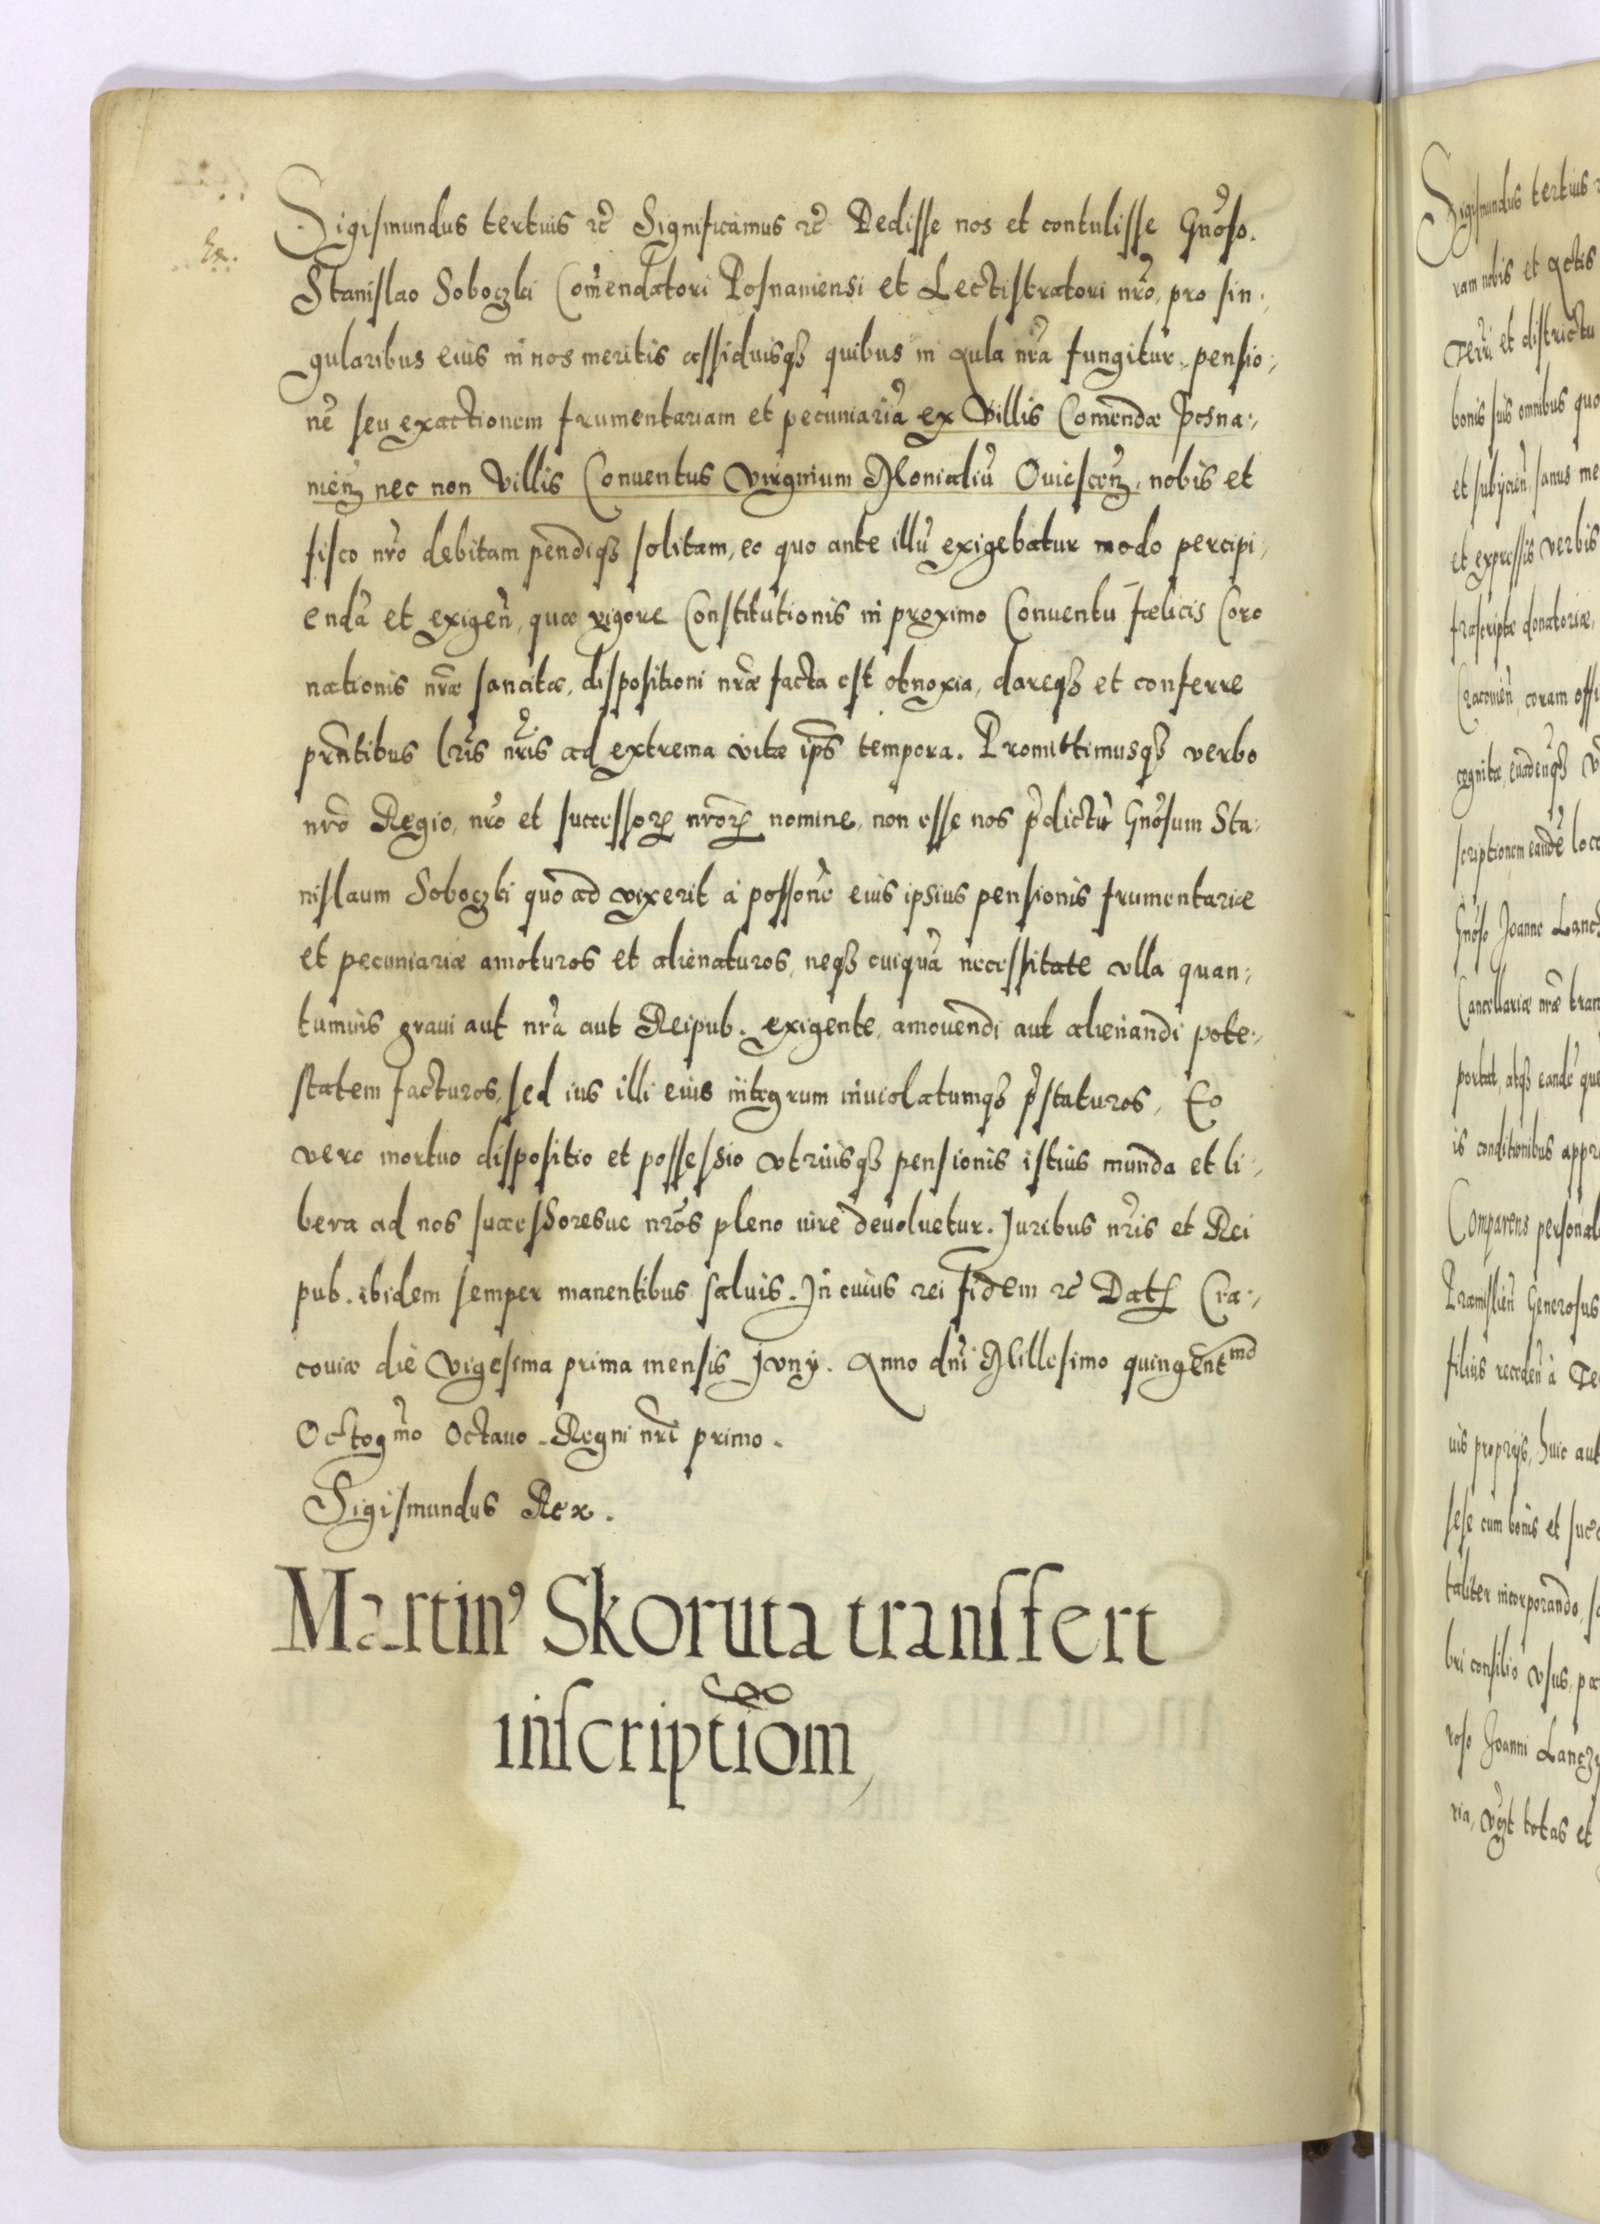 Ex.
Sigismundus tertius rc̃ Significamus rc̃ Dedisse nos et contulisse Gñoso.
Stanislao Soboczki Com̃endatori Posnaniensi et Lectistratori nr̃o, pro sin-
gularibus eius in nos meritis assiduisqȝ quibus in Aula nr̃a fungitur, pensio-
nẽ seu exactionem frumentariam et pecuniariã ex Villis Com̃endæ Posna-
nieñ nec non Villis Conuentus Virginum Monialiũ Ouiesceñ, nobis et
fisco nr̃o debitam pendiqȝ solitam, eo quo ante illũ exigebatur modo percipi-
endã et exigeñ, quæ vigore Constitutionis in proximo Conuentu fælicis Coro
nationis nr̃æ sancitæ, dispositioni nr̃æ facta est obnoxia, dareqȝ et conferre
pñtibus lr̃is nr̃is ad extrema vitæ ip̃s tempora. Promittimusqȝ verbo
nr̃o Regio, nr̃o et successoꝝ nr̃oꝝ nomine, non esse nos p̃dictũ Gñosum Sta-
nislaum Soboczki quo ad vixerit à possoñe eius ipsius pensionis frumentariæ
et pecuniariæ amoturos et alienaturos, neqȝ cuiquã necessitate vlla quan-
tumuis graui aut nr̃a aut Reipub. exigente, amouendi aut alienandi pote-
statem facturos, sed ius illi eius integrum inuiolatumqȝ p̃staturos, Eo
vero mortuo dispositio et possessio vtriusqȝ pensionis istius munda et li-
bera ad nos successoresue nr̃os pleno iure deuoluetur. Juribus nr̃is et Rei
pub. ibidem semper manentibus saluis. In cuius rei fidem rc̃ Dat Cra-
couiæ die Vigesima prima mensis Juny. Anno dñi Millesimo quingentmo
Octogm̃o Octauo. Regni nr̃i primo.
Sigismundus Rex.
Martin9 Skoruta transfert
inscriptiom̃
Sigismundus tertius
ram nobis et Actis
Terri et districtu
bonis suis omnibus quo
et subijcieñ, sanus me
et expressis verbis
frascriptæ donatoriæ,
Cracouieñ, coram offi
cognitæ, euadenqȝ
scriptionem eandẽ loco
Gñoso Joanne
Cancellariæ nr̃æ tran
portat, atqȝ eandẽ que
is conditionibus appro
Comparens personal
Præmislieñ Generosus
filius recedeñ à Te
uis proprijs, huic aut
sese cum bonis et succ
taliter incorporando,
bri consilio vsus,
roso Joanni
ria, totas et